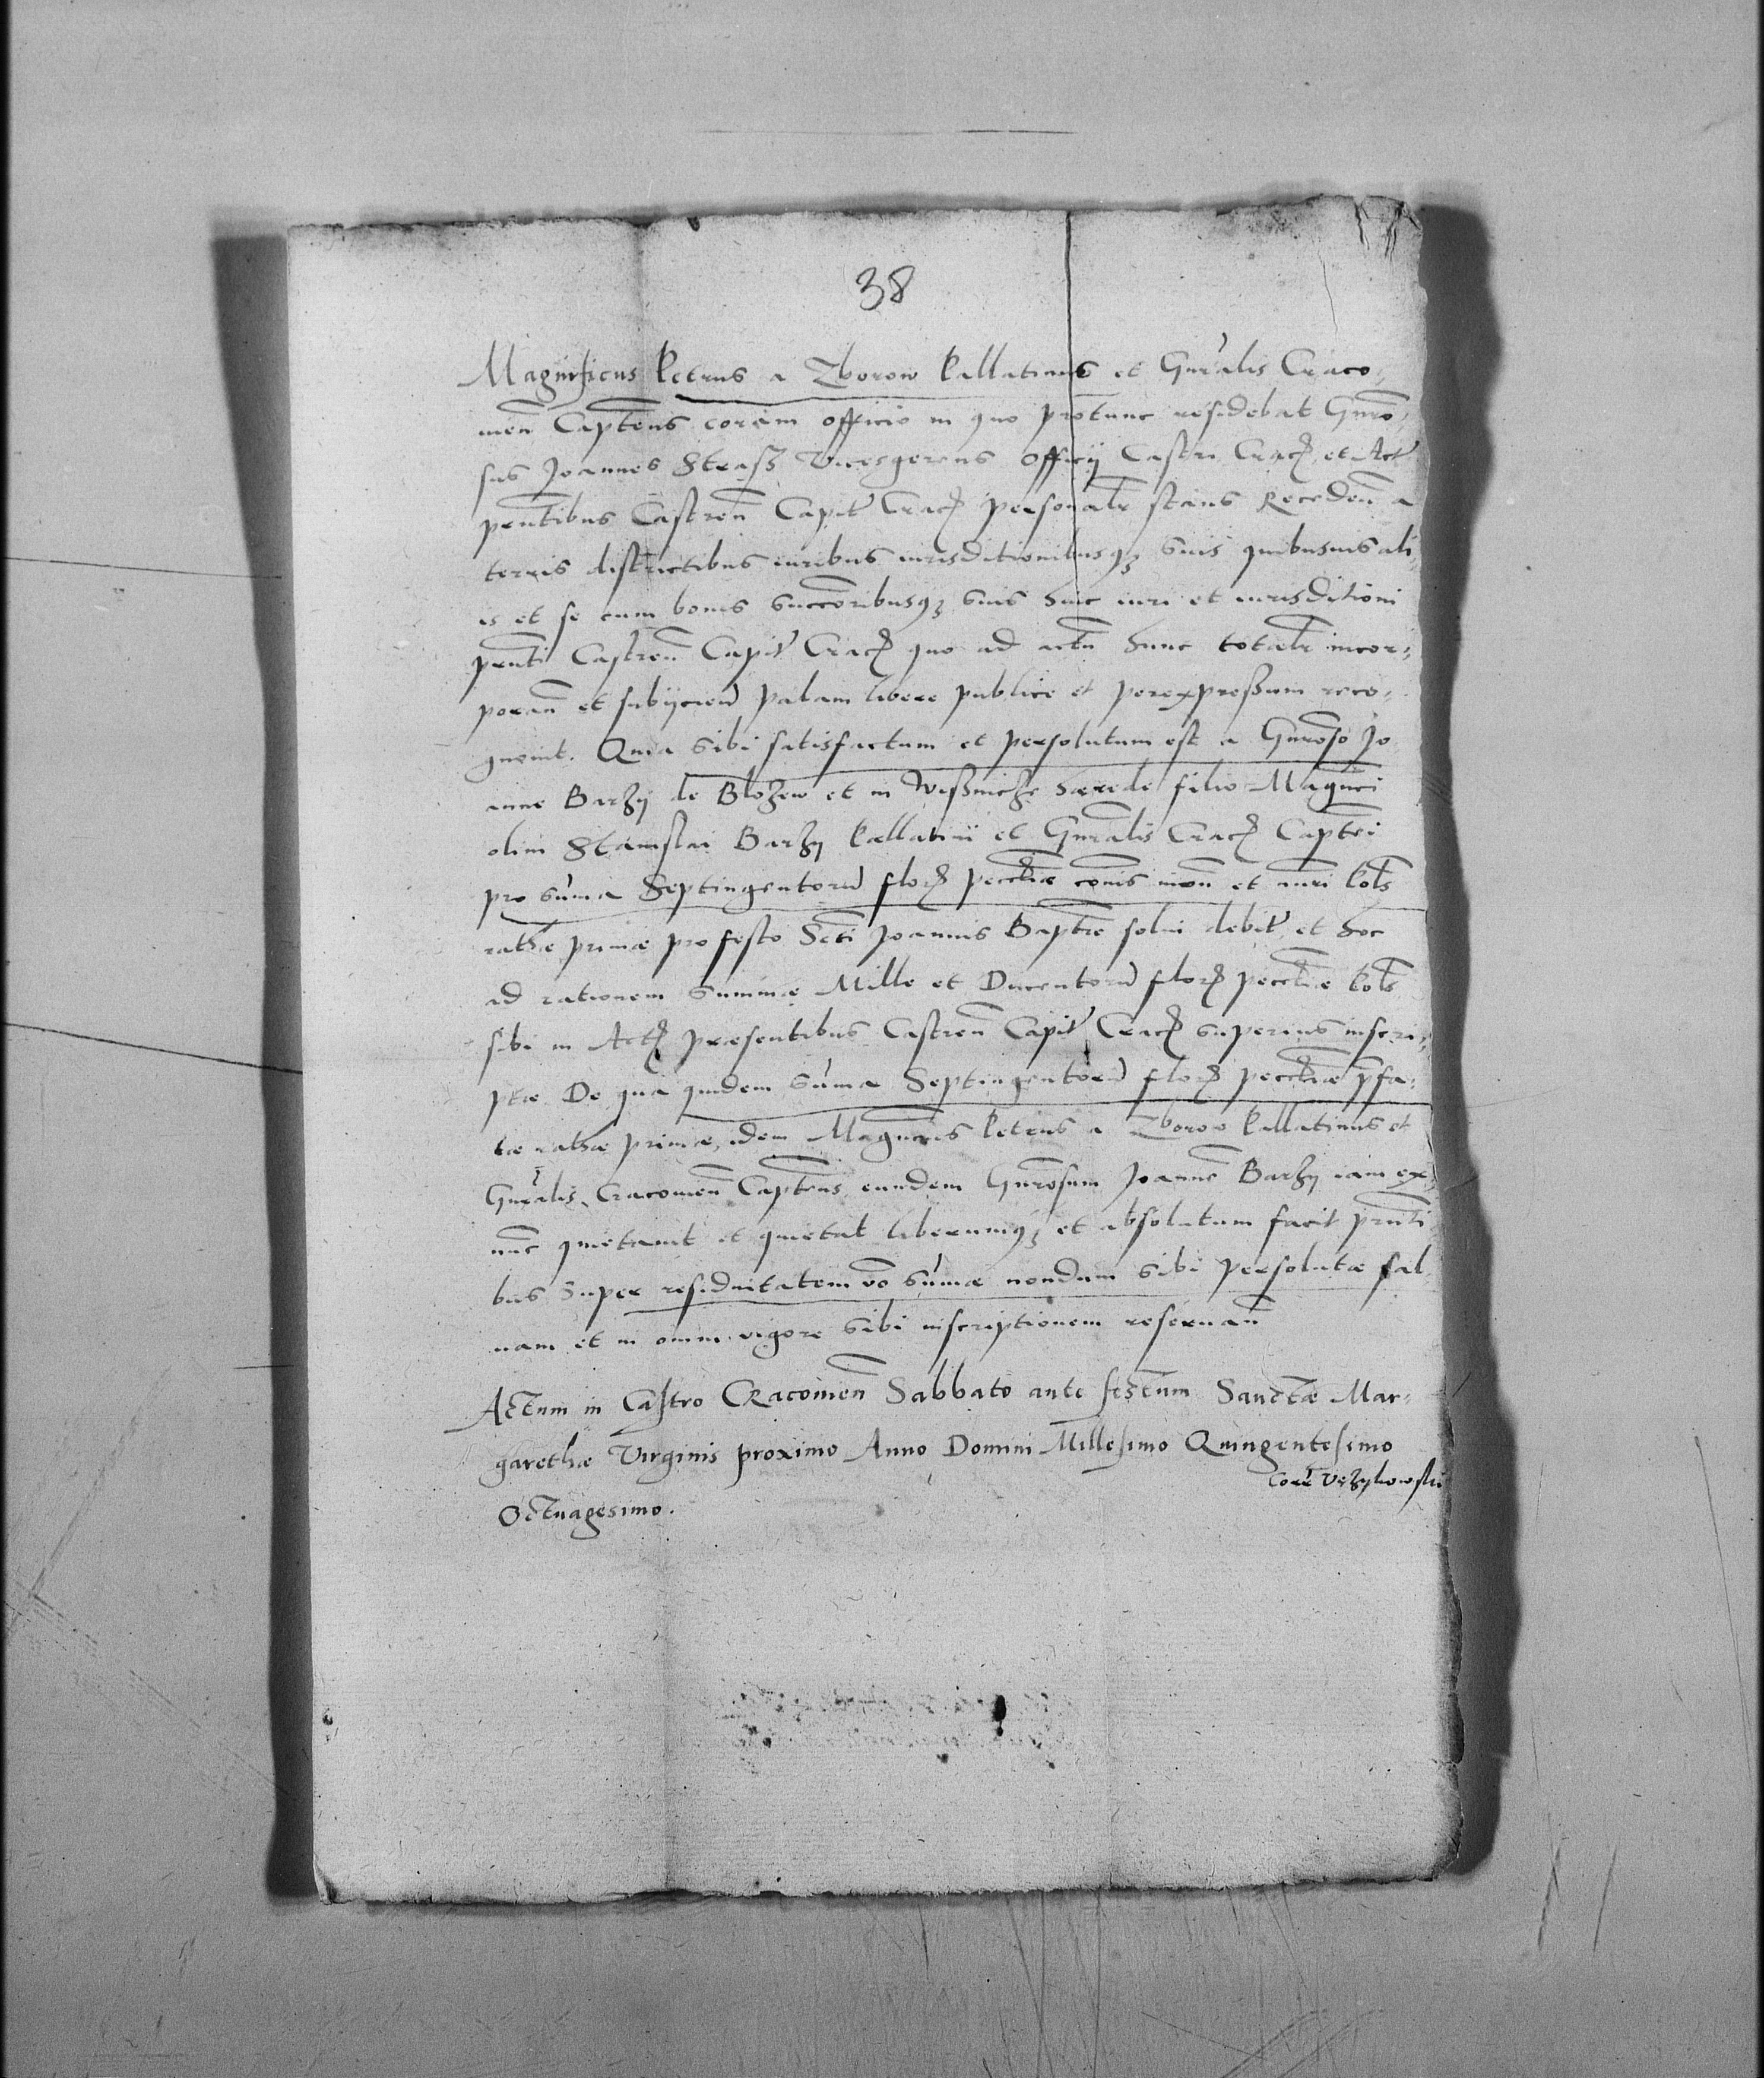 38
Magnificus Petrus a Zborow Pallatinus et Gnralis Craco„
uien̄ Capten̄s coram officio in quo protunc residebat Gnro„
sus Joannes Strasz Vicesgerens officij Castri Crac̄ et Act
pn̄tibus Castren̄ Capit Crac̄ personalr stans Receden̄ a
terris districtibus iuribus iurisditionibusqȝ suis quibusuis ali
is et se cum bonis succoribusqȝ suis huic iuri et iurisditioni
pn̄ti Castren̄ Capit Crac̄ quo ad actū hunc totalr incor„
poran̄ et subijcien̄ palam libere publice et per expressum reco„
gnouit. Quia sibi satisfactum et persolutum est a Gnroso Jo
anne Barzy de Blozew et in Wissnicze haerede filio Magnci
olim Stanislai Barzy Pallatini et Gnralis Crac̄ Captei
pro sūma Septingentorū flor̄ pecciae cōmis mon̄ et nūri Pols
rathae primae pro festo Scti Joannis Baptae solui debit et hoc
ad rationem summae Mille et Ducentorū flor̄ pecciae Pols
sibi in Act̄ praesentibus Castren̄ Capit Crac̄ superius inscri„
ptae De qua quidem sūma Septingentorū flor̄ pecciae p̄fa„
tae rathae primae, idem Magncus Petrus a Zborow Pallatinus et
Gnralis Cracouien̄ Capten̄s eundem Gnrosum Joannē Barzy iam ex
nunc quietauit et quietat liberumqȝ et absolutum facit pn̄ti
bus Super residuitatem vo sūmae nondum sibi persolutae sal
uam et in omni vigore sibi inscriptionem reseruan̄
Actum in Castro Cracouien̄ Sabbato ante festum Sanctae Mar„
garethae Virginis proximo Anno Domini Millesimo Quingentesimo
Octuagesimo.